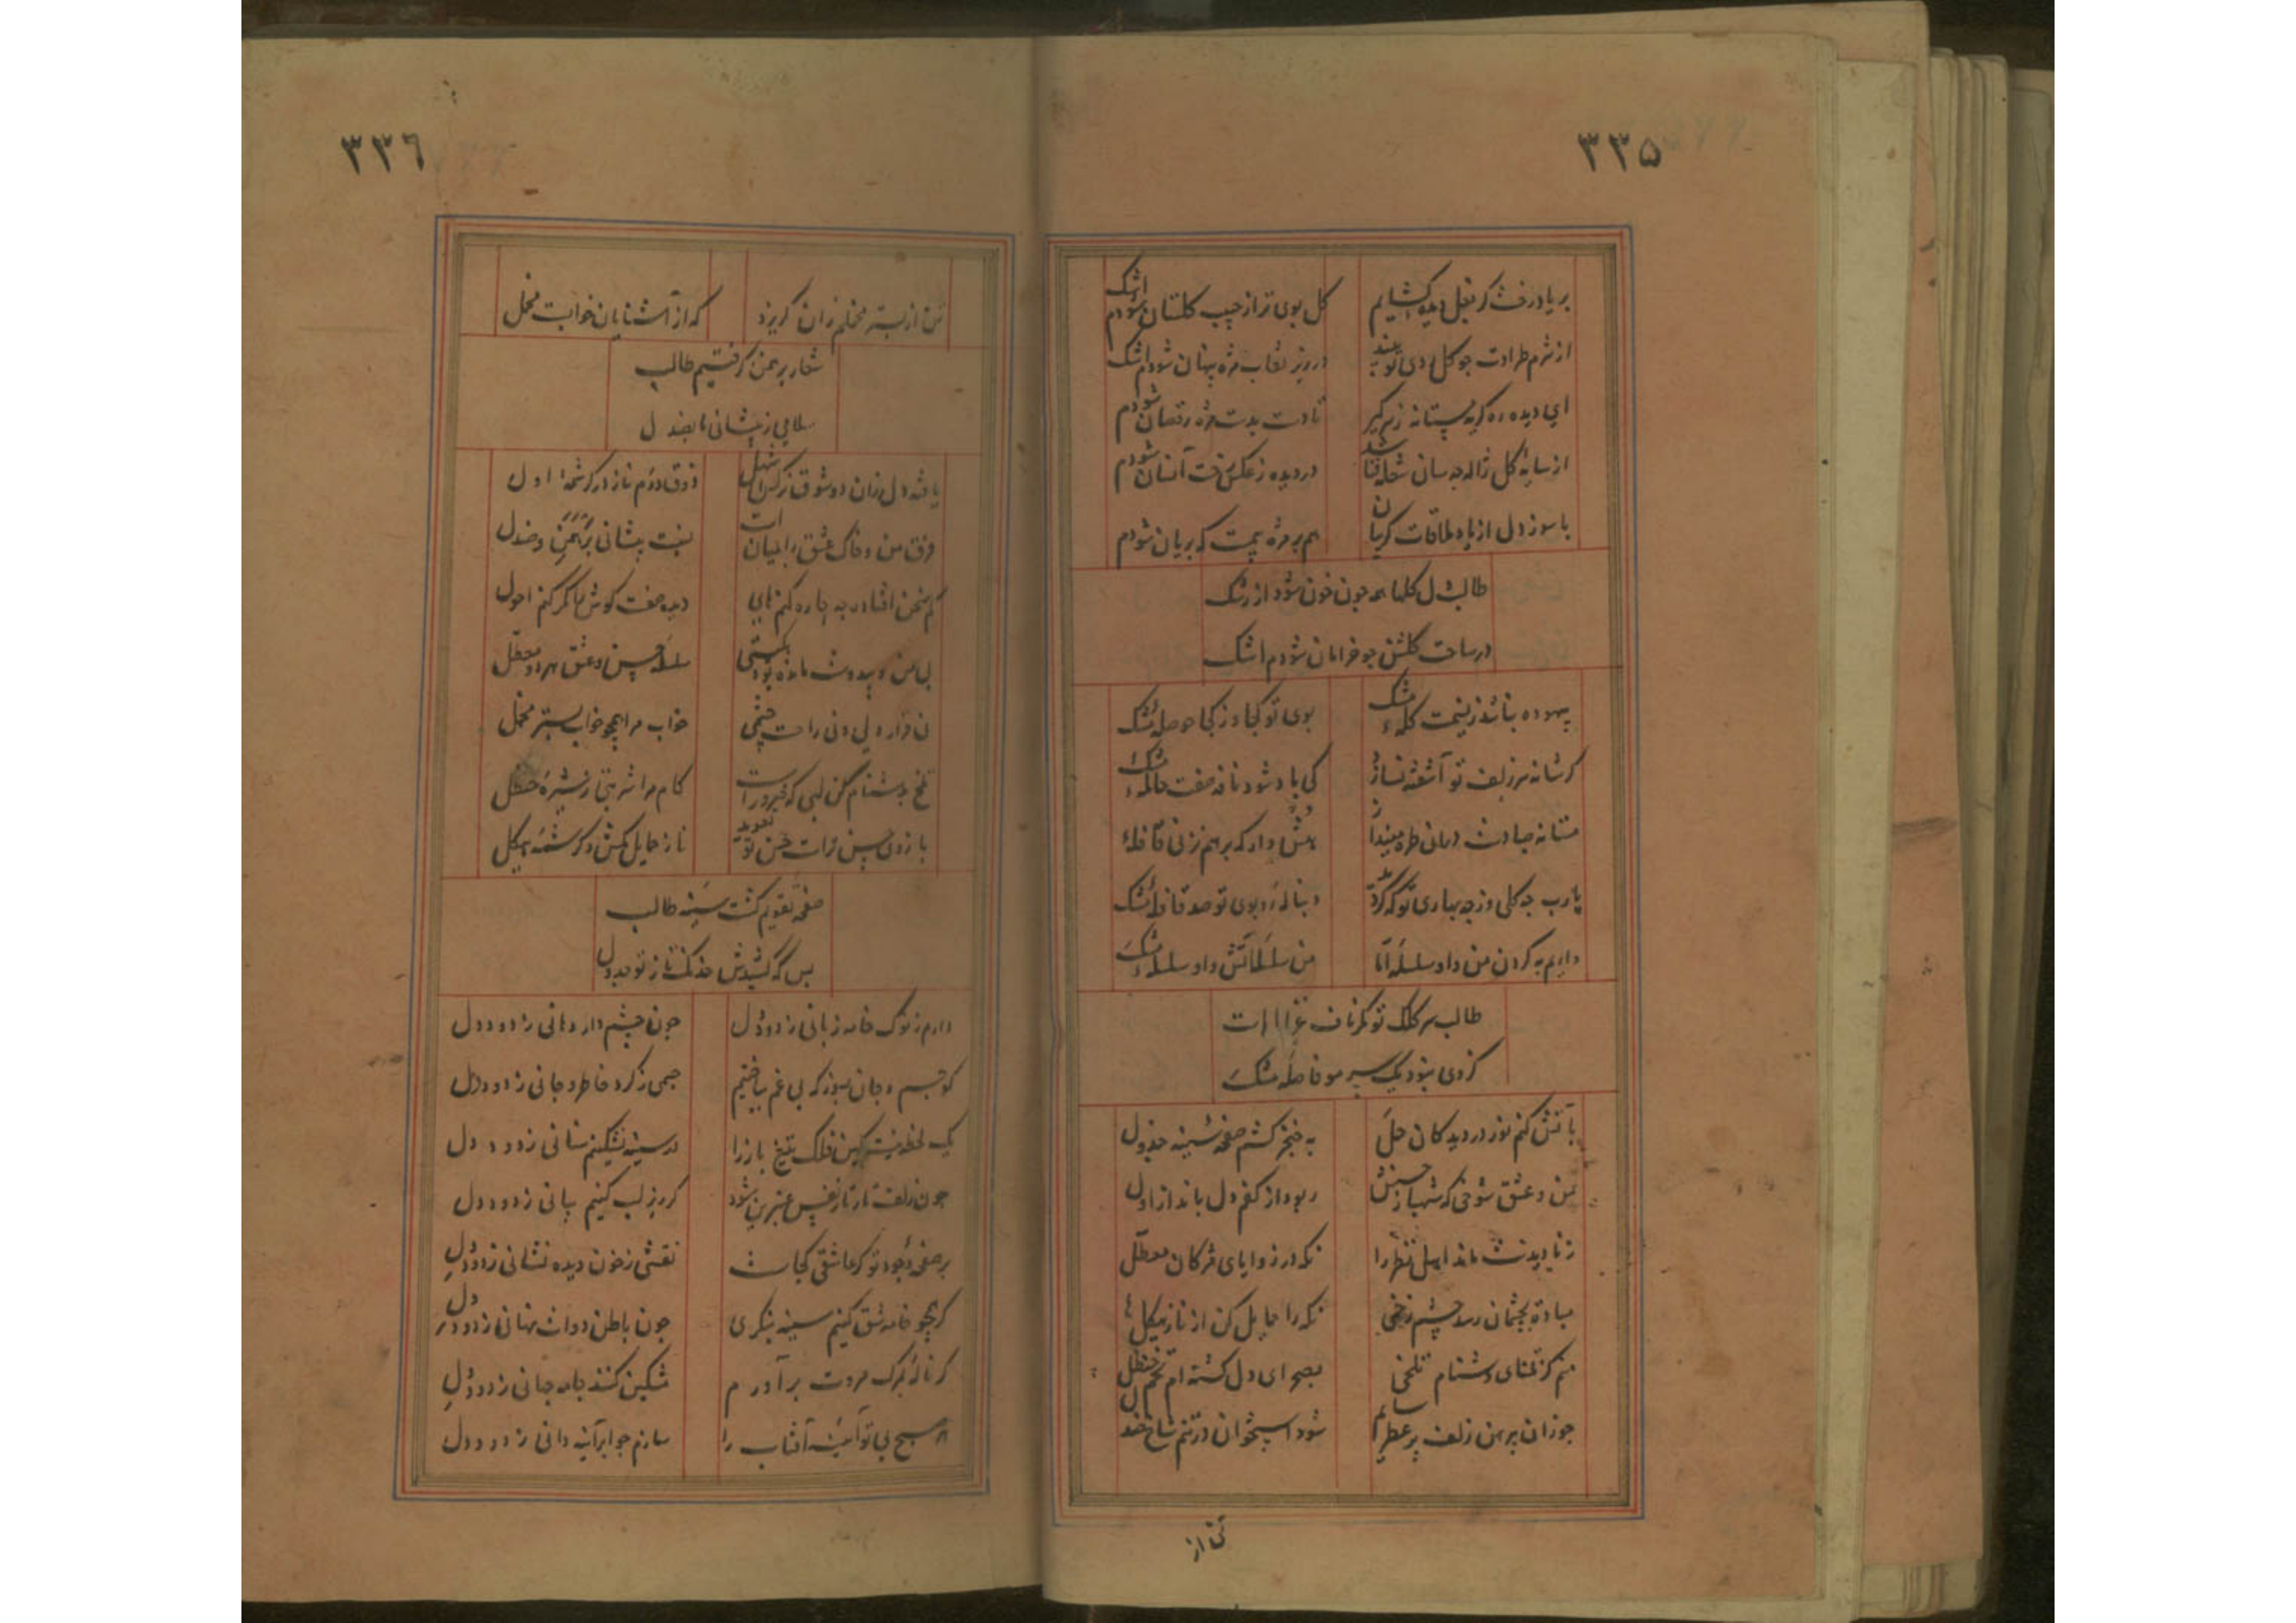 ۳۳۵
بر یاد رخت گر بغل دیده گشایم
گل بوی تر از جیب گلستان شودم اشک
از شرم طراوت چو گل روی تو بیند
در زیر نقاب مژه پنهان شودم اشک
ای دیده ره گریه مستانه ز سر گیر
تا دست بدست مژه رقصان شودم
از سایه گل ژاله چه سان شعله فشاند
در دیده ز عکس رخت آنسان شودم
با سوز دل از باد ملاقات گریبان
هم بر مژه بیمست که بریان شودم
طالب دل گلها همه چون خون شود از رشک
در ساحت گلشن چو خرامان شودم اشک
بیهوده نباشد ز نسیمت گله مشک
بوی تو کجا وز کجا حوصله مشک
گر شانه سر زلف تو آشفته نسازد
کی باد شود نافه صفت حامله مشک
مستانه صبا دست درمانی طره مینداز
هش دار که بر هم نزنی قافله
یارب چه گلی وز چه بهاری تو که گردد
دنباله رو بوی تو صد قافله مشک
داریم به گردن من و او سلسله اما
من سلسله آتش و او سلسله مشک
طالب سر کلک تو مگر ناف غزال است
کز وی نبود یک سر مو فاصله مشک
به آتش کنم نوز در دیدگان حل
به خنجر کشم صفحه سینه جدول
من و عشق شوخی که شهباز حسنش
ربود از کفم دل به انداز اول
ز نادیدنت ماند اهل نظر را
نگه در زوایای مژگان معطل
مبادت بچشمان رسد چشم زخمی
نگه را حمایل کن از ناز هیکل
منم کز تمنای دشنام تلخی
بصحرای دل کشته ام تخم حنظل
چو زان پیرهن زلف پر عطر سایم
شود استخوان در تنم شاخ صندل
تن از
۳۳۶
تن از بستر مخملم زان گریزد
که از آشنایان خوابست مخمل
شعار برهمن گرفتیم طالب
سلامی ز پیشانی ما بصندل
یافته دل زان دو شوق نرگس اشهل
ذوق دوم ناز در کرشمه اول
فرق من و خاک عشق را بمیان است
نسبت پیشانی برهمن و صندل
کم سخن افتاده به چاره کنم های
دیده صفت گوش را مگر کنم احول
بی من و بیدوست مانده بود بگیتی
سلسله حسن و عشق هر دو معطل
نی قرار دلی و نی راحت چشمی
خواب مرا همچو خواب بستر مخمل
تلخ بدشنام کن لبی که ضرور است
کام مرا شربتی ز شیره حنظل
بازوی حسن ترا ست حسن تو تعویذ
ناز حمایل کش و کرشمه هیکل
صفحه تقویم گشت سینه طالب
بس که کشیدش خدنگ ناز تو جدول
دارم ز نوک خامه زبانی ز دود دل
چون چشم دار دهانی ز دود دل
کو جسم و جان بسوز که بی غم بیافتیم
جسمی ز گرد خاطر و جانی ز دود دل
یک لحظه نیست کین فلک تیغ باز را
در سینه نشکنیم سنانی ز دود دل
چون زلفت تار تار نفس عنبرین شود
گر زیر لب کنیم بیانی ز دود دل
بر صفحه وجود تو گر عاشقی کجاست
نقشی ز خون دیده نشانی ز دود دل
گر همچو خامه شق کنیم سینه بنگری
چون باطن دوات نهانی ز دود دل
گر ناله بمرگ مروت برآورم
مشکین کنند جامه جهانی ز دود دل
هر صبح بی تو آینه آفتاب را
سازم چو ابر آینه دانی ز دود دل